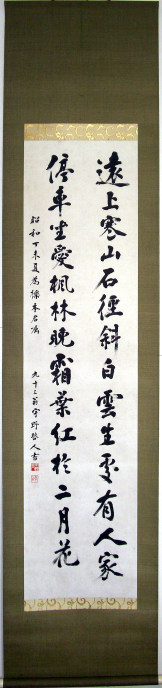 遠上寒山石徑斜白雲生處有人家
停車坐愛楓林晚霜葉紅於二月花
昭和丁未夏為本君嘱
九十三翁宇野哲人書